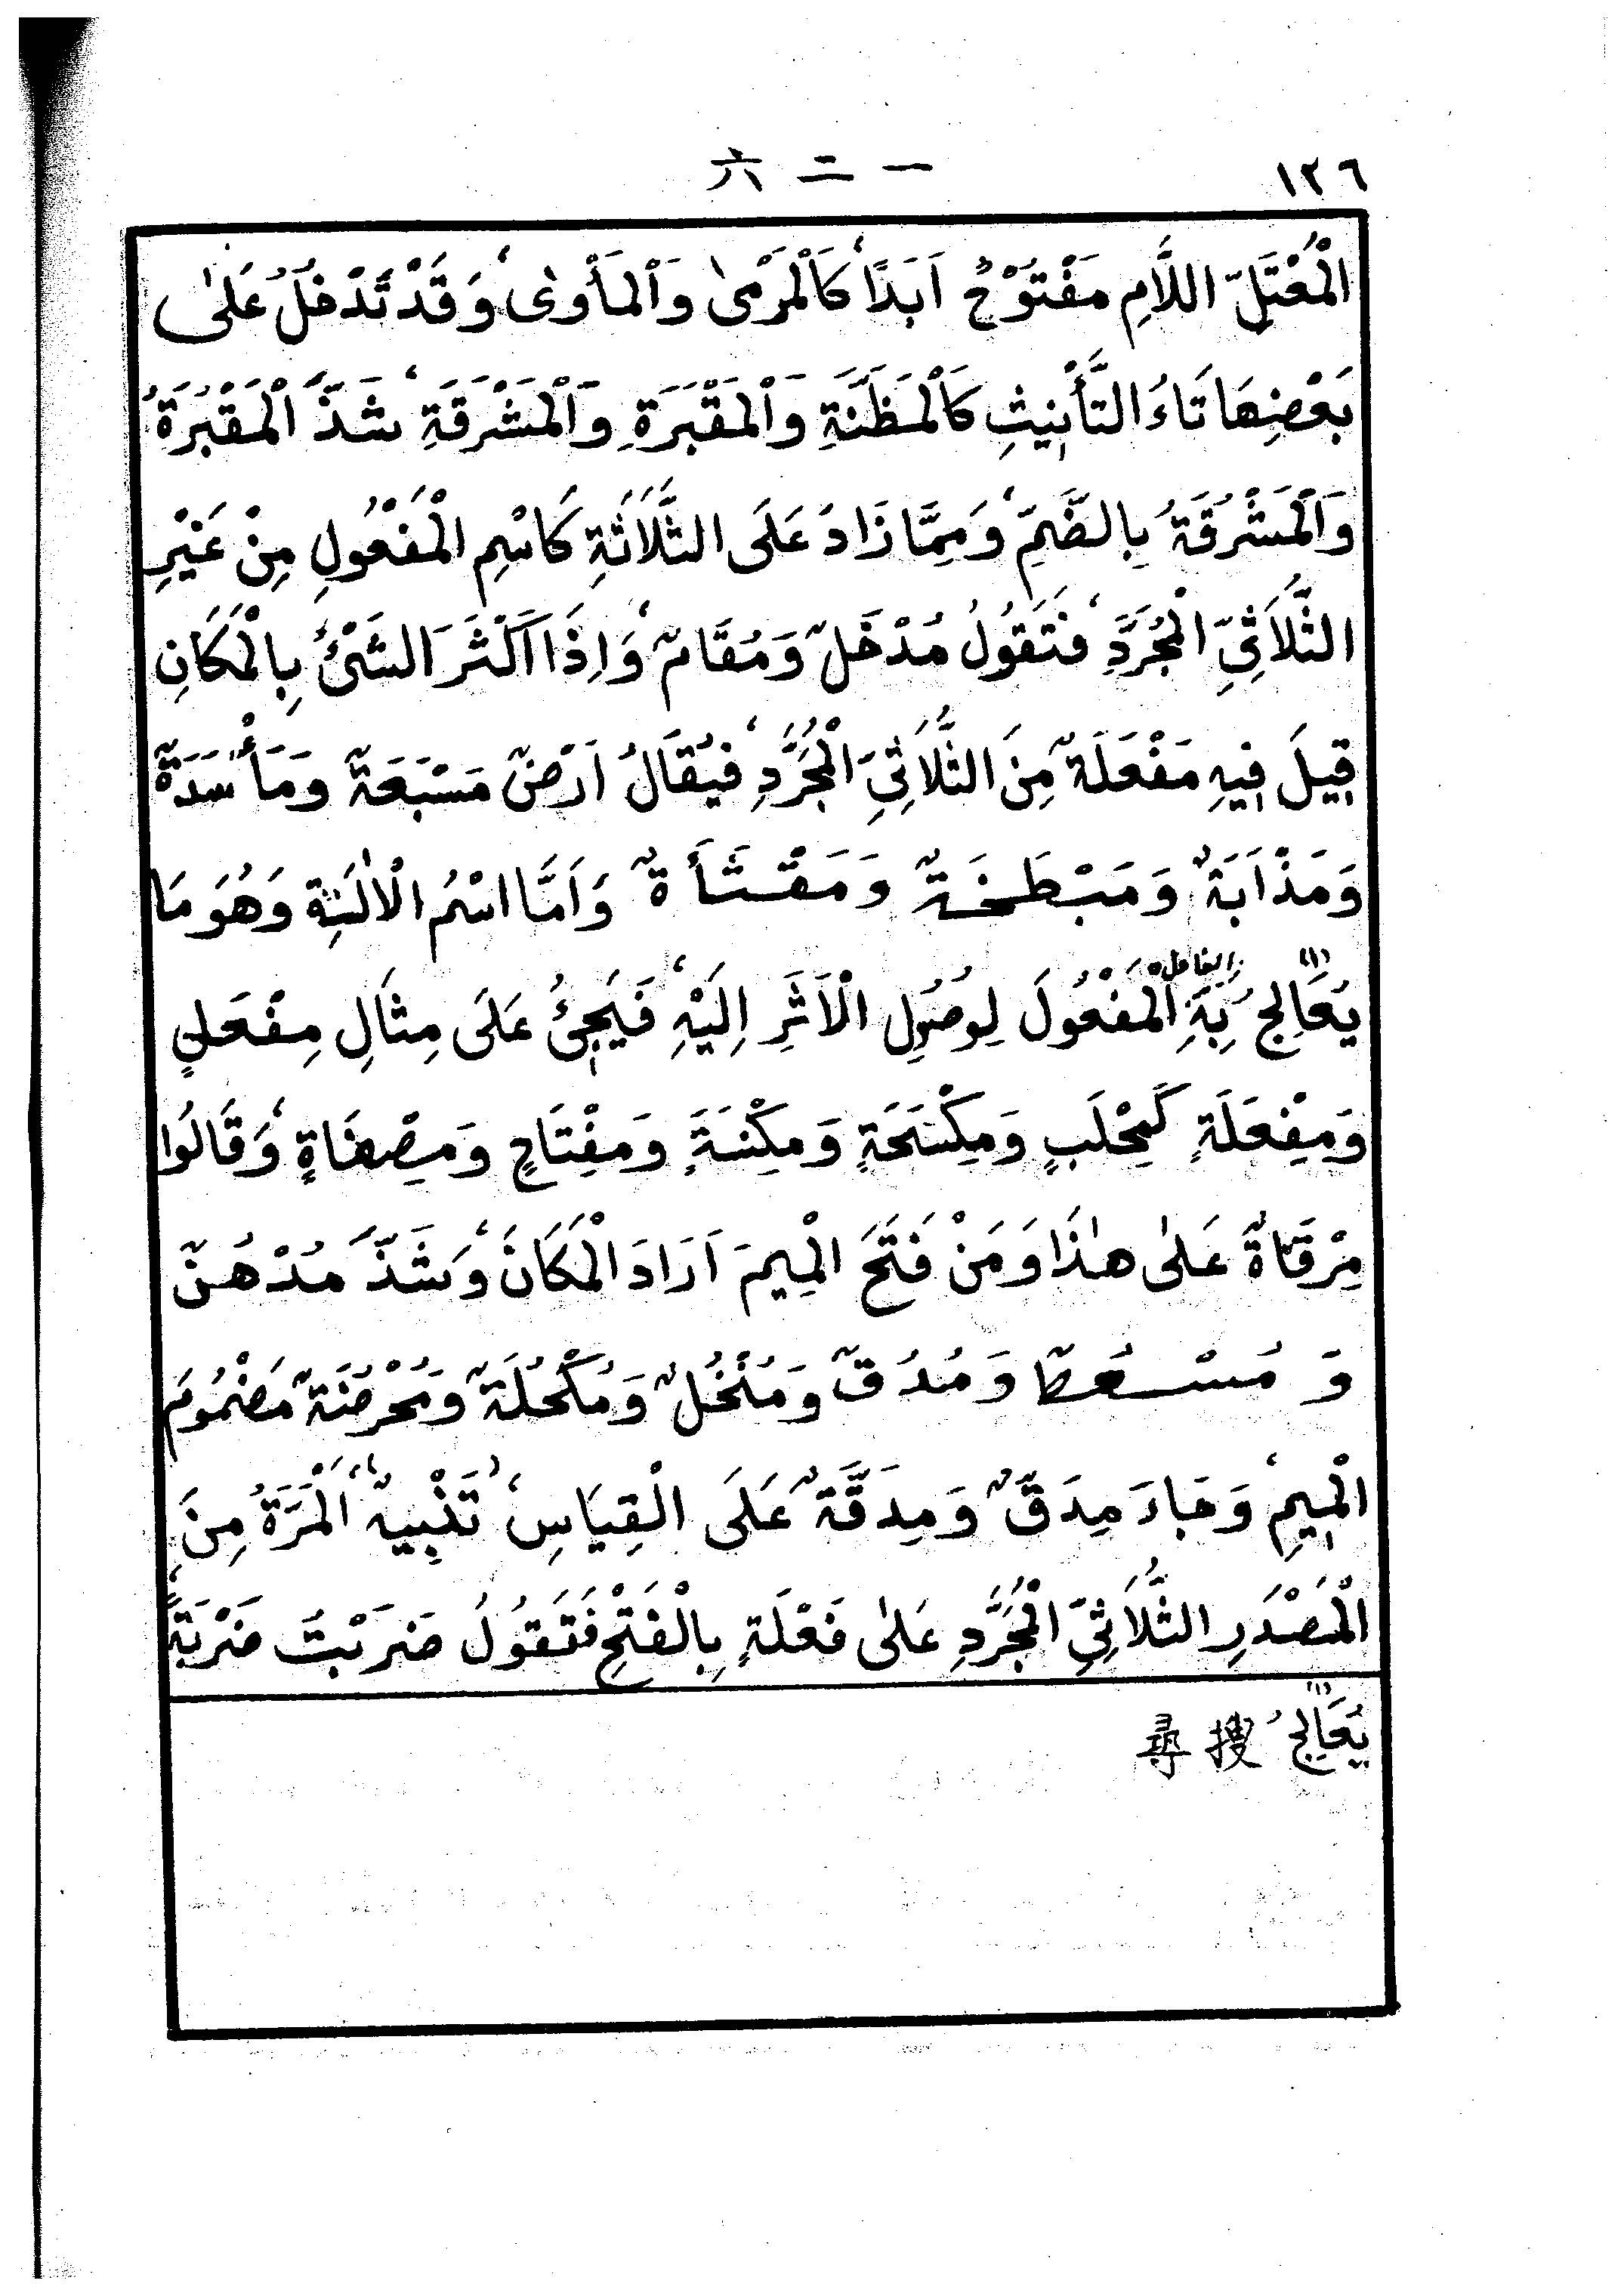 ١٢٦ 一二六
الْمُعْتَلِّ اللَّامِ مَفْتُوْحٌ اَبَدًا، كَالْمَرْمٰى وَالْمَأْوٰى، وَقَدْ تَدْخُلُ عَلٰى
بَعْضِهَا تَاءُ التَّأْنِيثِ كَالْمَظَنَّةِ وَالْمَقْبَرَةِ وَالْمَشْرَقَةِ، شَذَّ الْمَقْبُرَةُ
وَالْمَشْرُقَةُ بِالضَّمِّ، وَمِمَّا زَادَ عَلَى الثَّلَاثَةِ كَاسْمِ الْمَفْعُولِ مِنْ غَيْرِ
الثُّلَاثِيِّ الْمُجَرَّدِ، فَتَقُولُ مُدْخَلٌ وَمُقَامٌ، وَاِذَا اَكْثَرَ الشَّىْءُ بِالْمَكَانِ
قِيلَ فِيهِ مَفْعَلَةٌ مِنَ الثُّلَاثِيِّ الْمُجَرَّدِ، فَيُقَالُ اَرْضٌ مَسْبَعَةٌ وَمَأْسَدَةٌ
وَمَذْاَبَةٌ وَمَبْطَخَةٌ وَمَقْثَأَةٌ وَاَمَّا اسْمُ الْاٰلَةِ وَهُوَ مَا
يُعَالِجُ (١) بِهِ الْفَاعِلُ الْمَفْعُولَ لِوُصُولِ الْاَثَرِ اِلَيْهِ، فَيَجِىْءُ عَلَى مِثَالِ مِفْعَلٍ
وَمِفْعَلَةٍ كَمِحْلَبٍ وَمِكْسَحَةٍ وَمِكْنَسَةٍ وَمِفْتَاحٍ وَمِصْفَاةٍ، وَقَالُوا
مِرْقَاةٌ عَلٰى هٰذَا وَمَنْ فَتَحَ الْمِيمَ اَرَادَ الْمَكَانَ، وَشَذَّ مُدْهُنٌ
وَ مُسْعُطٌ وَمُدُقٌّ وَمُنْخُلٌ وَمُكْحُلَةٌ وَمُحْرُضَةٌ مَضْمُومَ
الْمِيمِ، وَجَاءَ مِدَقٌّ وَمِدَقَّةٌ عَلَى الْقِيَاسِ، تَنْبِيهٌ، اَلْمَرَّةُ مِنَ
الْمَصْدَرِ الثُّلَاثِيِّ الْمُجَرَّدِ عَلٰى فَعْلَةٍ بِالْفَتْحِ فَتَقُولُ ضَرَبْتُ ضَرْبَةً
(١) يُعَالِجُ 搜尋